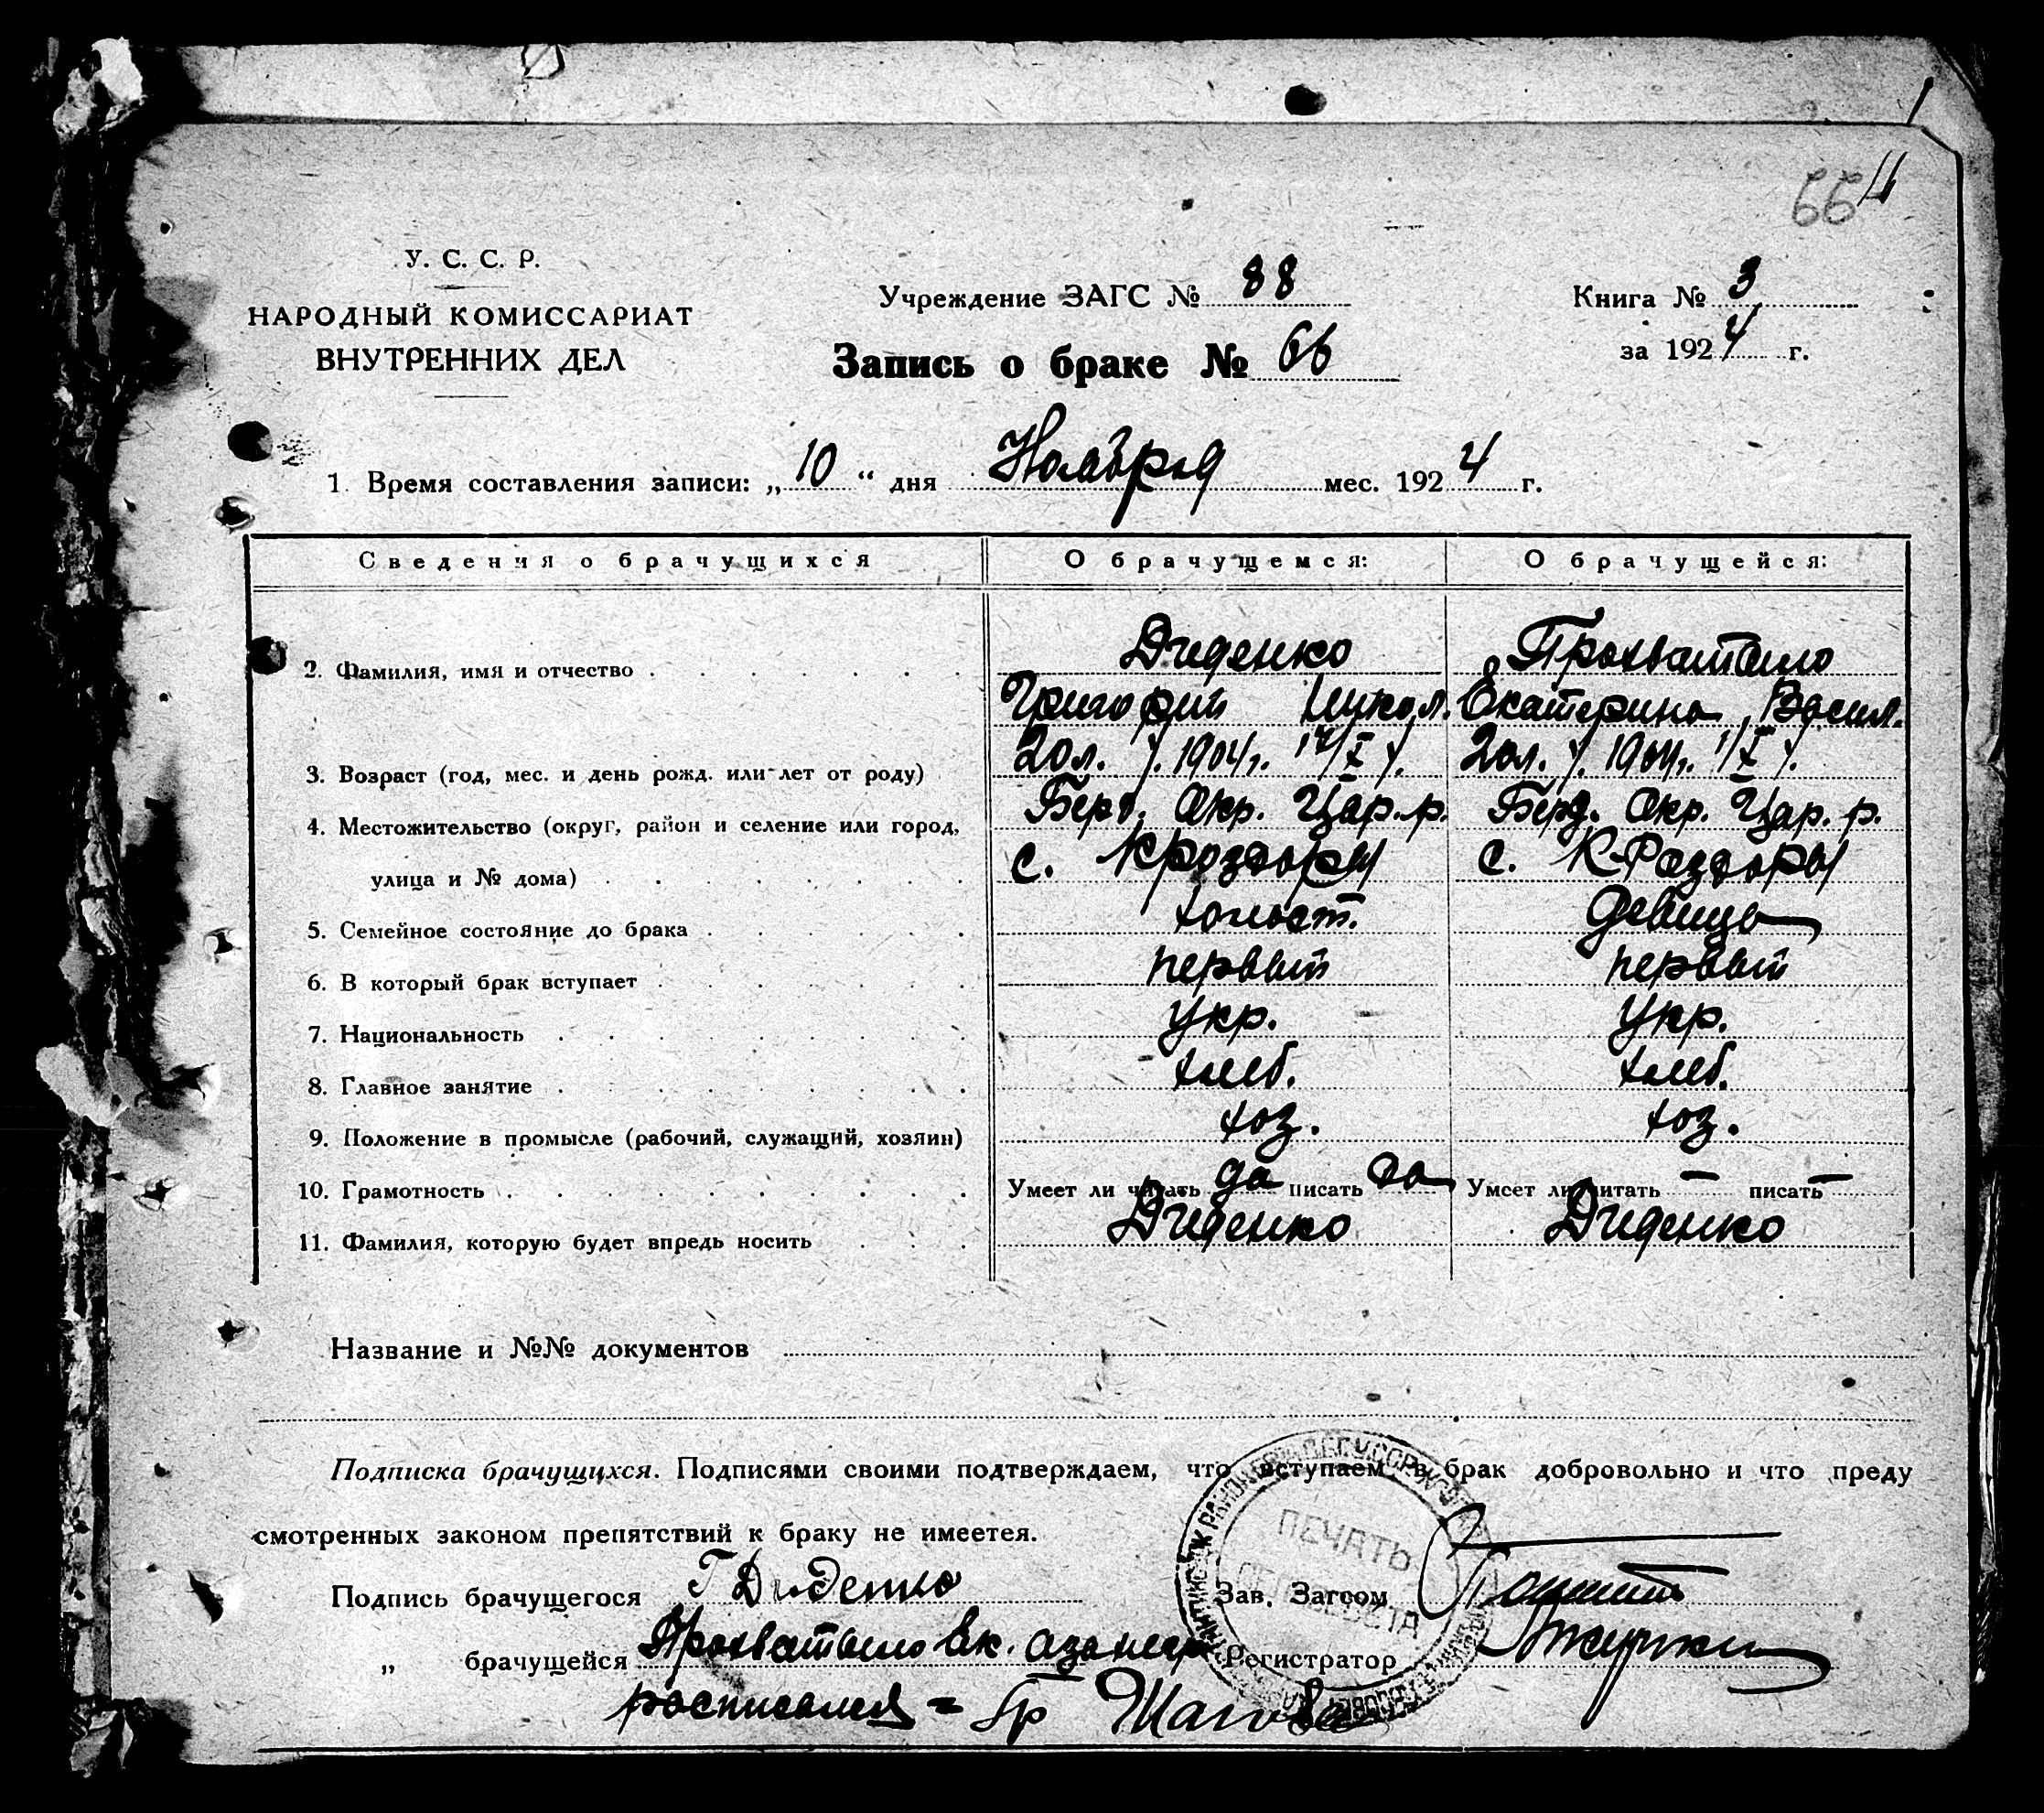 664
У. С. С. Р.
НАРОДНЫЙ КОМИССАРИАТ
ВНУТРЕННИХ ДЕЛ
Учреждение ЗАГС № 88
Книга № 3
за 1924 г.
Запись о браке № 66
1. Время составления записи: „10“ дня Ноября мес. 1924 г.
Сведения о брачущихся О брачущемся: О брачущейся:
Диденко Прохватило
2. Фамилия, имя и отчество
Григорий Никол. Екатерина Васил.
3. Возраст (год, мес. и день рожд. или лет от роду) 20л. 1904г. 20л. 1904г. 1/X
4. Местожительство (округ, район и селение или город, Берд. Окр. Цар. р. Берд. Окр. Цар. р.
улица и № дома) с. К Роздоры с. К-Раздоры
5. Семейное состояние до брака холост. девица
6. В который брак вступает первый первый
7. Национальность Укр. Укр.
8. Главное занятие хлеб. хлеб.
9. Положение в промысле (рабочий, служащий, хозяин) хоз. хоз.
10. Грамотность Умеет ли читать да писать да Умеет ли читать — писать —
11. Фамилия, которую будет впредь носить Диденко Диденко
Название и №№ документов
Подписка брачущихся. Подписями своими подтверждаем, что вступаем в брак добровольно и что преду
смотренных законом препятствий к браку не имеетея.
ПЕЧАТЬ
Подпись брачущегося Г Диденко Зав. Загсом
„ брачущейся Прохватило Ек. а за неё Регистратор
росписался = Гр